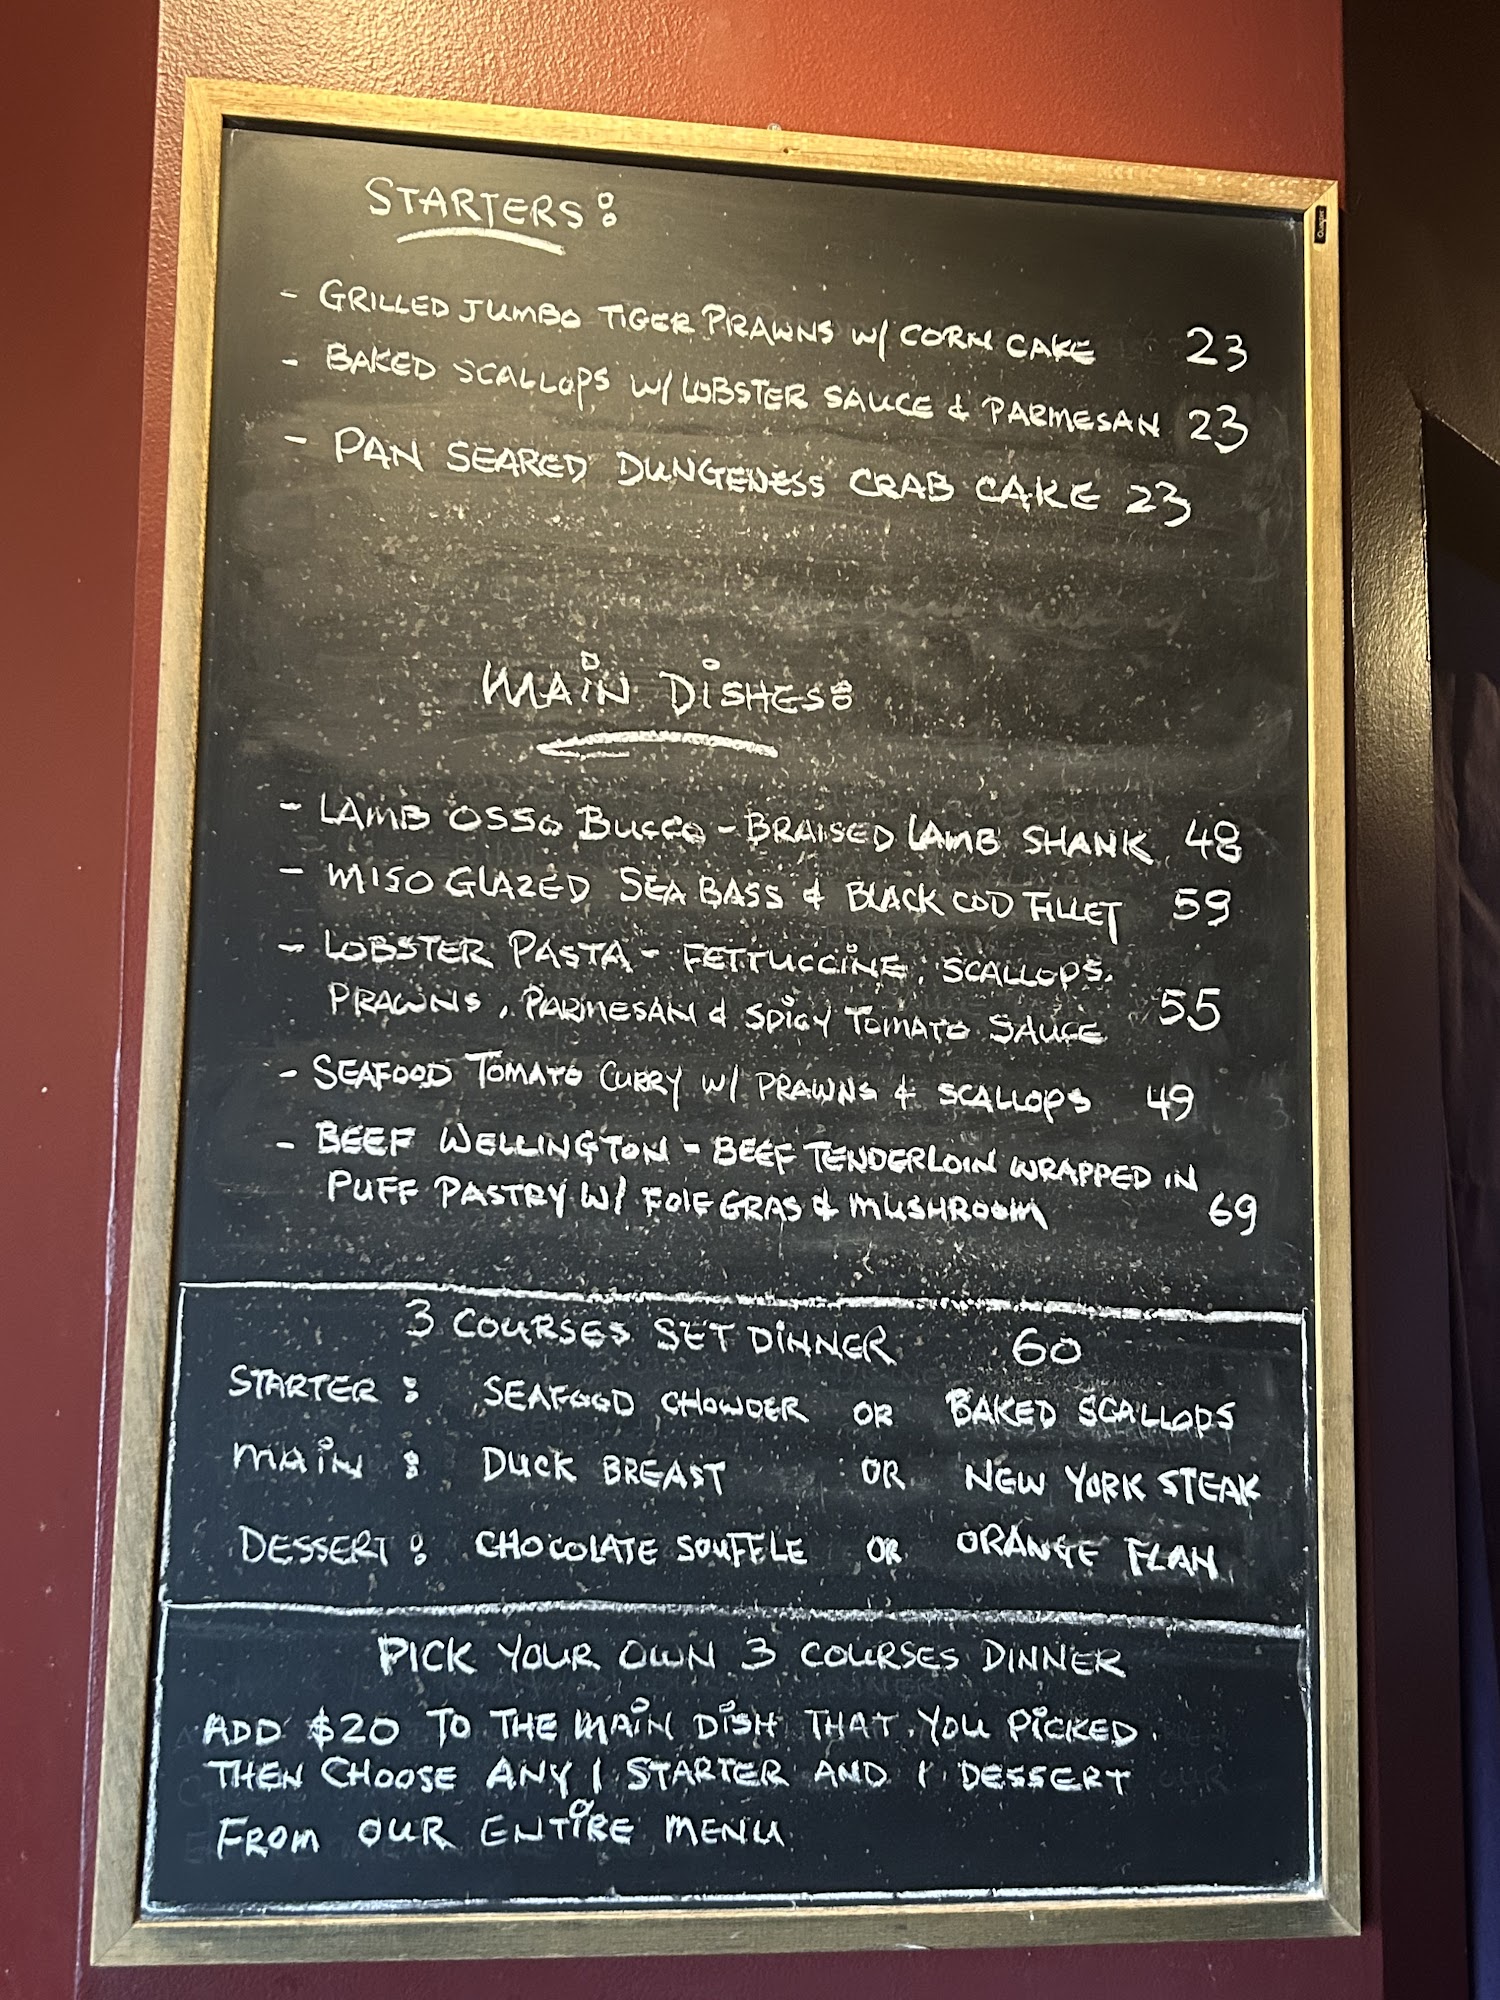 STARTERS:
- GRILLED JUMBO TIGER PRAWNS W/ CORN CAKE 23
- BAKED SCALLOPS W/ LOBSTER SAUCE & PARMESAN 23
- PAN SEARED DUNGENESS CRAB CAKE 23
MAIN DISHES:
- LAMB OSSO BUCCO - BRAISED LAMB SHANK 48
- MISO GLAZED SEA BASS & BLACK COD FILLET 59
- LOBSTER PASTA - FETTUCCINE, SCALLOPS,
PRAWNS, PARMESAN & SPICY TOMATO SAUCE 55
- SEAFOOD TOMATO CURRY W/ PRAWNS & SCALLOPS 49
- BEEF WELLINGTON - BEEF TENDERLOIN WRAPPED IN
PUFF PASTRY W/ FOIE GRAS & MUSHROOM 69
3 COURSES SET DINNER 60
STARTER: SEAFOOD CHOWDER OR BAKED SCALLOPS
MAIN: DUCK BREAST OR NEW YORK STEAK
DESSERT: CHOCOLATE SOUFFLE OR ORANGE FLAN
PICK YOUR OWN 3 COURSES DINNER
ADD $20 TO THE MAIN DISH THAT YOU PICKED.
THEN CHOOSE ANY 1 STARTER AND 1 DESSERT
FROM OUR ENTIRE MENU